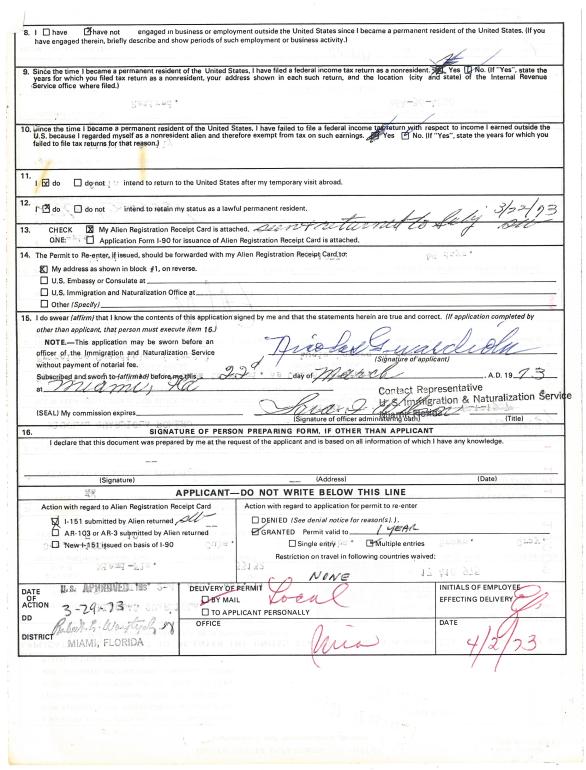 8. I ☐ have ☑ have not engaged in business or employment outside the United States since I became a permanent resident of the United States. (If you
have engaged therein, briefly describe and show periods of such employment or business activity.)
9. Since the time I became a permanent resident of the United States, I have filed a federal income tax return as a nonresident. Yes No. (If "Yes", state the
years for which you filed tax return as a nonresident, your address shown in each such return, and the location (city and state) of the Internal Revenue
Service office where filed.)
10. Since the time I became a permanent resident of the United States, I have failed to file a federal income tax return with respect to income I earned outside the
U.S. because I regarded myself as a nonresident alien and therefore exempt from tax on such earnings. Yes No. (If "Yes", state the years for which you
failed to file tax returns for that reason.)
11.
I ☒ do ☐ do not intend to return to the United States after my temporary visit abroad.
12.
I ☒ do ☐ do not intend to retain my status as a lawful permanent resident.
3/22/73
13. CHECK ☒ My Alien Registration Receipt Card is attached. returned to on
ONE: ☐ Application Form I-90 for issuance of Alien Registration Receipt Card is attached.
14. The Permit to Re-enter, if issued, should be forwarded with my Alien Registration Receipt Card to:
☒ My address as shown in block #1, on reverse.
☐ U.S. Embassy or Consulate at
☐ U.S. Immigration and Naturalization Office at
☐ Other (Specify)
15. I do swear (affirm) that I know the contents of this application signed by me and that the statements herein are true and correct. (If application completed by
other than applicant, that person must execute item 16.)
NOTE.—This application may be sworn before an
officer of the Immigration and Naturalization Service
without payment of notarial fee.
Nicolas Guardiola
(Signature of applicant)
Subscribed and sworn to (affirmed) before me this 22d day of March , A.D. 19 73
at Miami, Fla
Contact Representative
U.S. Immigration & Naturalization Service
(SEAL) My commission expires
(Signature of officer administering oath) (Title)
16. SIGNATURE OF PERSON PREPARING FORM, IF OTHER THAN APPLICANT
I declare that this document was prepared by me at the request of the applicant and is based on all information of which I have any knowledge.
(Signature) (Address) (Date)
APPLICANT—DO NOT WRITE BELOW THIS LINE
Action with regard to Alien Registration Receipt Card
☒ I-151 submitted by Alien returned
☐ AR-103 or AR-3 submitted by Alien returned
☐ New I-151 issued on basis of I-90
Action with regard to application for permit to re-enter
☐ DENIED (See denial notice for reason(s).)
☑ GRANTED Permit valid to 1 YEAR
☐ Single entry ☒ Multiple entries
Restriction on travel in following countries waived:
NONE
DATE
OF
ACTION
DD
DISTRICT
U.S. APPROVED
3-29-73
MIAMI, FLORIDA
DELIVERY OF PERMIT
☐ BY MAIL Local
☐ TO APPLICANT PERSONALLY
OFFICE
Mia
INITIALS OF EMPLOYEE
EFFECTING DELIVERY
DATE
4/2/73